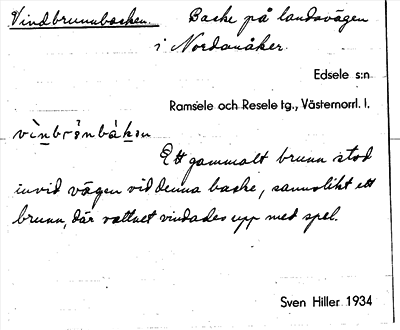 Vindbrunnbacken. Backe på landsvägen
i Nordanåker.
Edsele s:n
Ramsele och Resele tg., Västernorrl. l.
Ett gammalt brunn stod
invid vägen vid denna backe, sannolikt ett
brunn, där vattnet vindades upp med spel.
Sven Hiller 1934